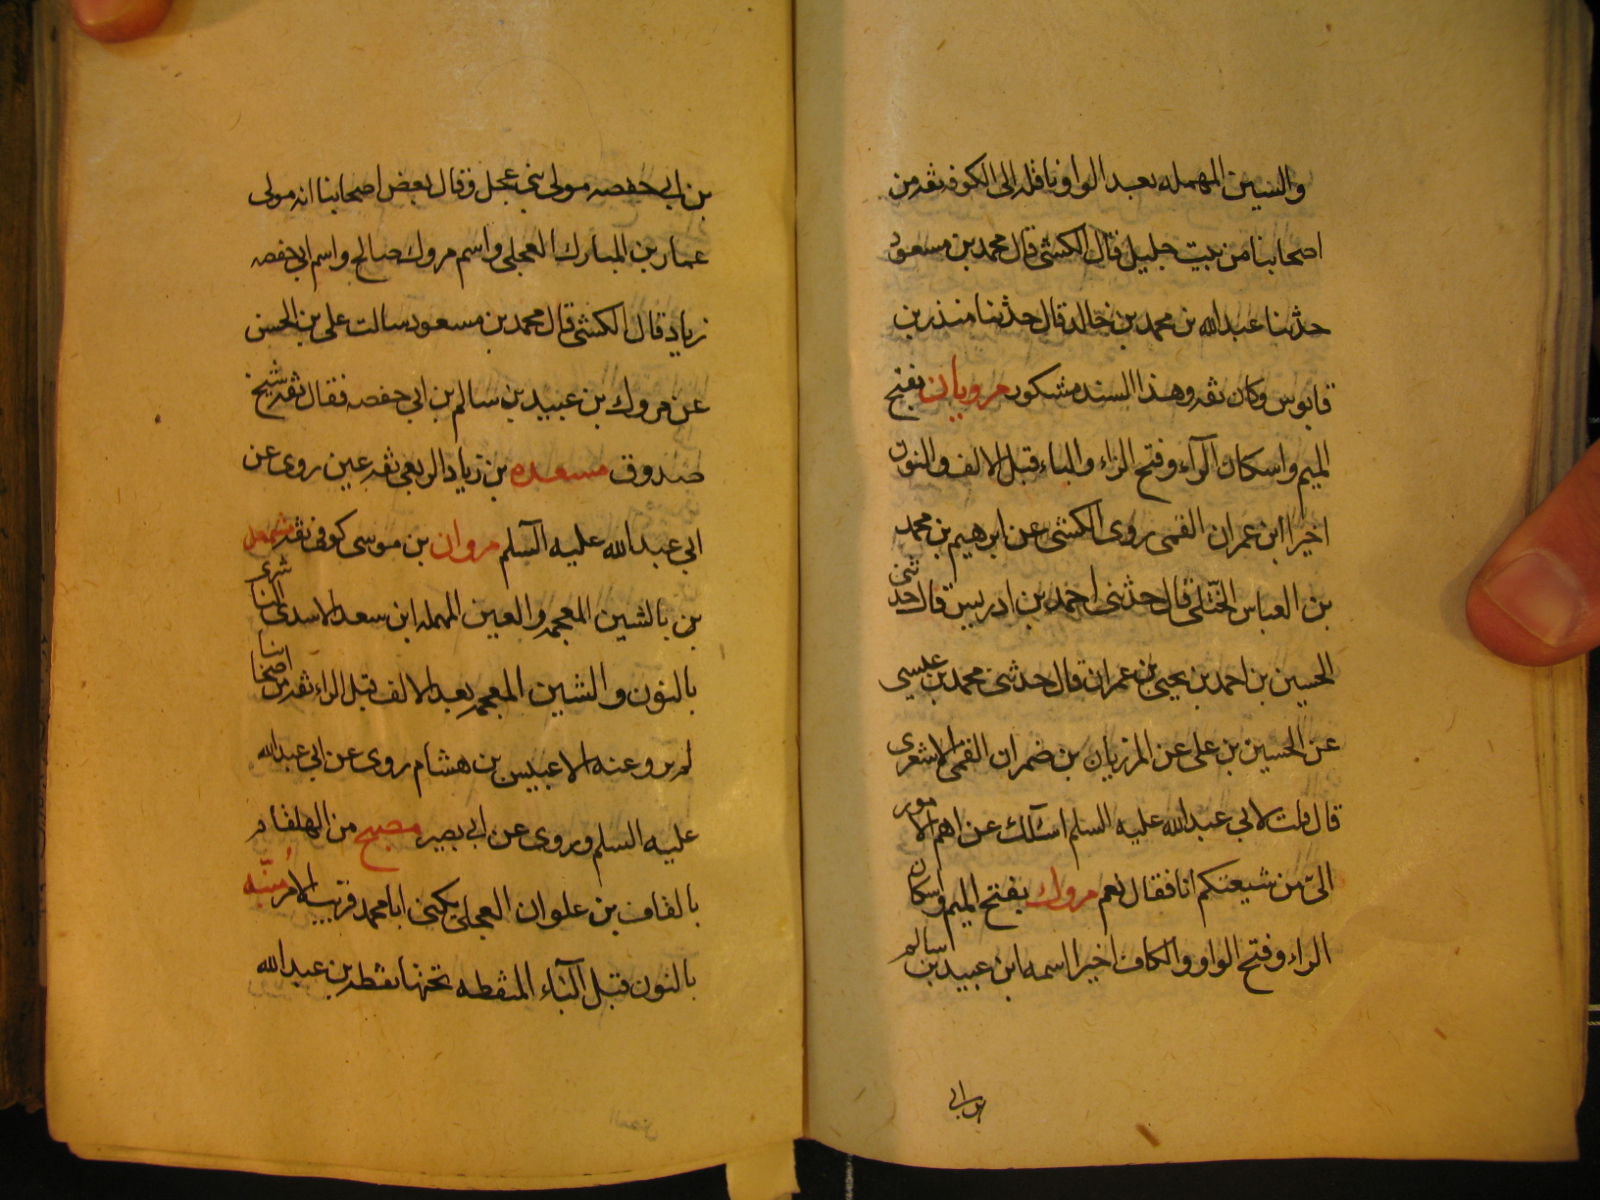 والسين المهمله بعد الواو ناقله الى الكوفه ثقه من
اصحابنا من بيت جليل قال الكشى قال محمد بن مسعود
حدثنا عبدالله بن محمد بن خالد قال حدثنا منذر بن
قابوس وكان ثقه وهذا السند مشكور مرزبان بفتح
الميم واسكان الرآء وفتح الزاء والباء قبل الالف والنون
اخيرا ابن عمران القمى روى الكشى عن ابرهيم بن محمد
بن العباس الختلى قال حدثنى احمد بن ادريس قال حدثنى
الحسين بن احمد بن يحيى بن عمران قال حدثنى محمد بن عيسى
عن الحسين بن على عن المرزبان بن ضمران القمى الاشعرى
قال قلت لابى عبدالله عليه السلم اسئلك عن اهم الامور
الىّ من شيعتكم انا فقال نعم مروك بفتح الميم واسكان
الراء وفتح الواو والكاف اخيرا اسمه ابن عبيد بن سالم
بن ابى
بن ابى حفصه مولى بنى عجل وقال بعض اصحابنا انه مولى
عمار بن المبارك العجلى واسم مروك صالح واسم ابى حفصه
زياد قال الكشى قال محمد بن مسعود سالت على بن الحسن
عن مروك بن عبيد بن سالم بن ابى حفصه فقال ثقه شيخ
صدوق مسعده بن زياد الربعى ثقه عين روى عن
ابى عبدالله عليه السلم مروان بن موسى كوفى ثقه مشمعل
بن بالشين المعجمه والعين المهمله ابن سعد الاسدى الناشرى
بالنون والشين المعجمه بعد الالف قبل الراء ثقه من اصحابنا
لم يرو عنه الا عبيس بن هشام روى عن ابى عبدالله
عليه السلم وروى عن ابى بصير مصبح من الهلقام
بالقاف بن علوان العجلى يكنى ابا محمد قريب الامر منبّه
بالنون قبل البآء المنقطه تحتها نقطه بن عبدالله